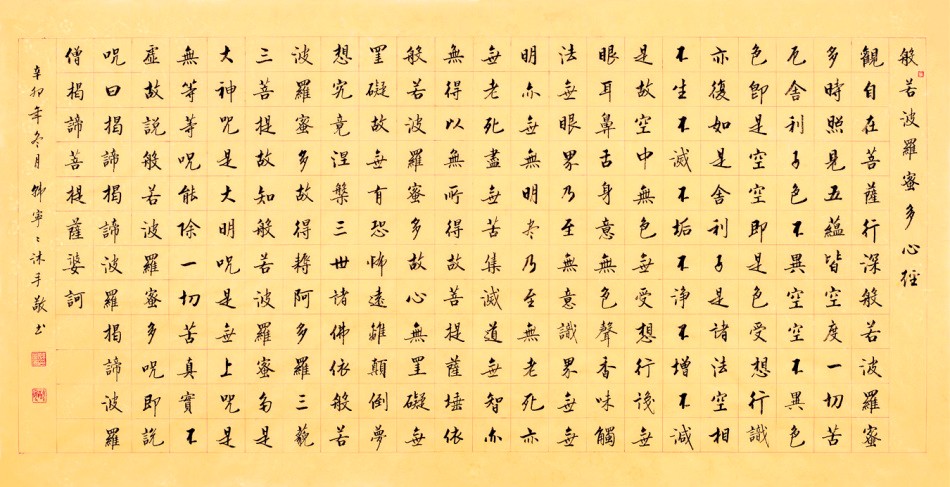 般若波羅蜜多心經
觀自在菩薩行深般若波羅蜜
多時照見五蘊皆空度一切苦
厄舍利子色不異空空不異色
色即是空空即是色受想行識
亦復如是舍利子是諸法空相
不生不滅不垢不淨不增不減
是故空中無色無受想行識無
眼耳鼻舌身意無色聲香味觸
法無眼界乃至無意識界無無
明亦無無明盡乃至無老死亦
無老死盡無苦集滅道無智亦
無得以無所得故菩提薩埵依
般若波羅蜜多故心無罣礙無
罣礙故無有恐怖遠離顛倒夢
想究竟涅槃三世諸佛依般若
波羅蜜多故得耨阿多羅三藐
三菩提故知般若波羅蜜多是
大神咒是大明咒是無上咒是
無等等咒能除一切苦真實不
虛故說般若波羅蜜多咒即說
咒曰揭諦揭諦波羅揭諦波羅
僧揭諦菩提薩婆訶
辛卯年冬月寧〻沐手敬书